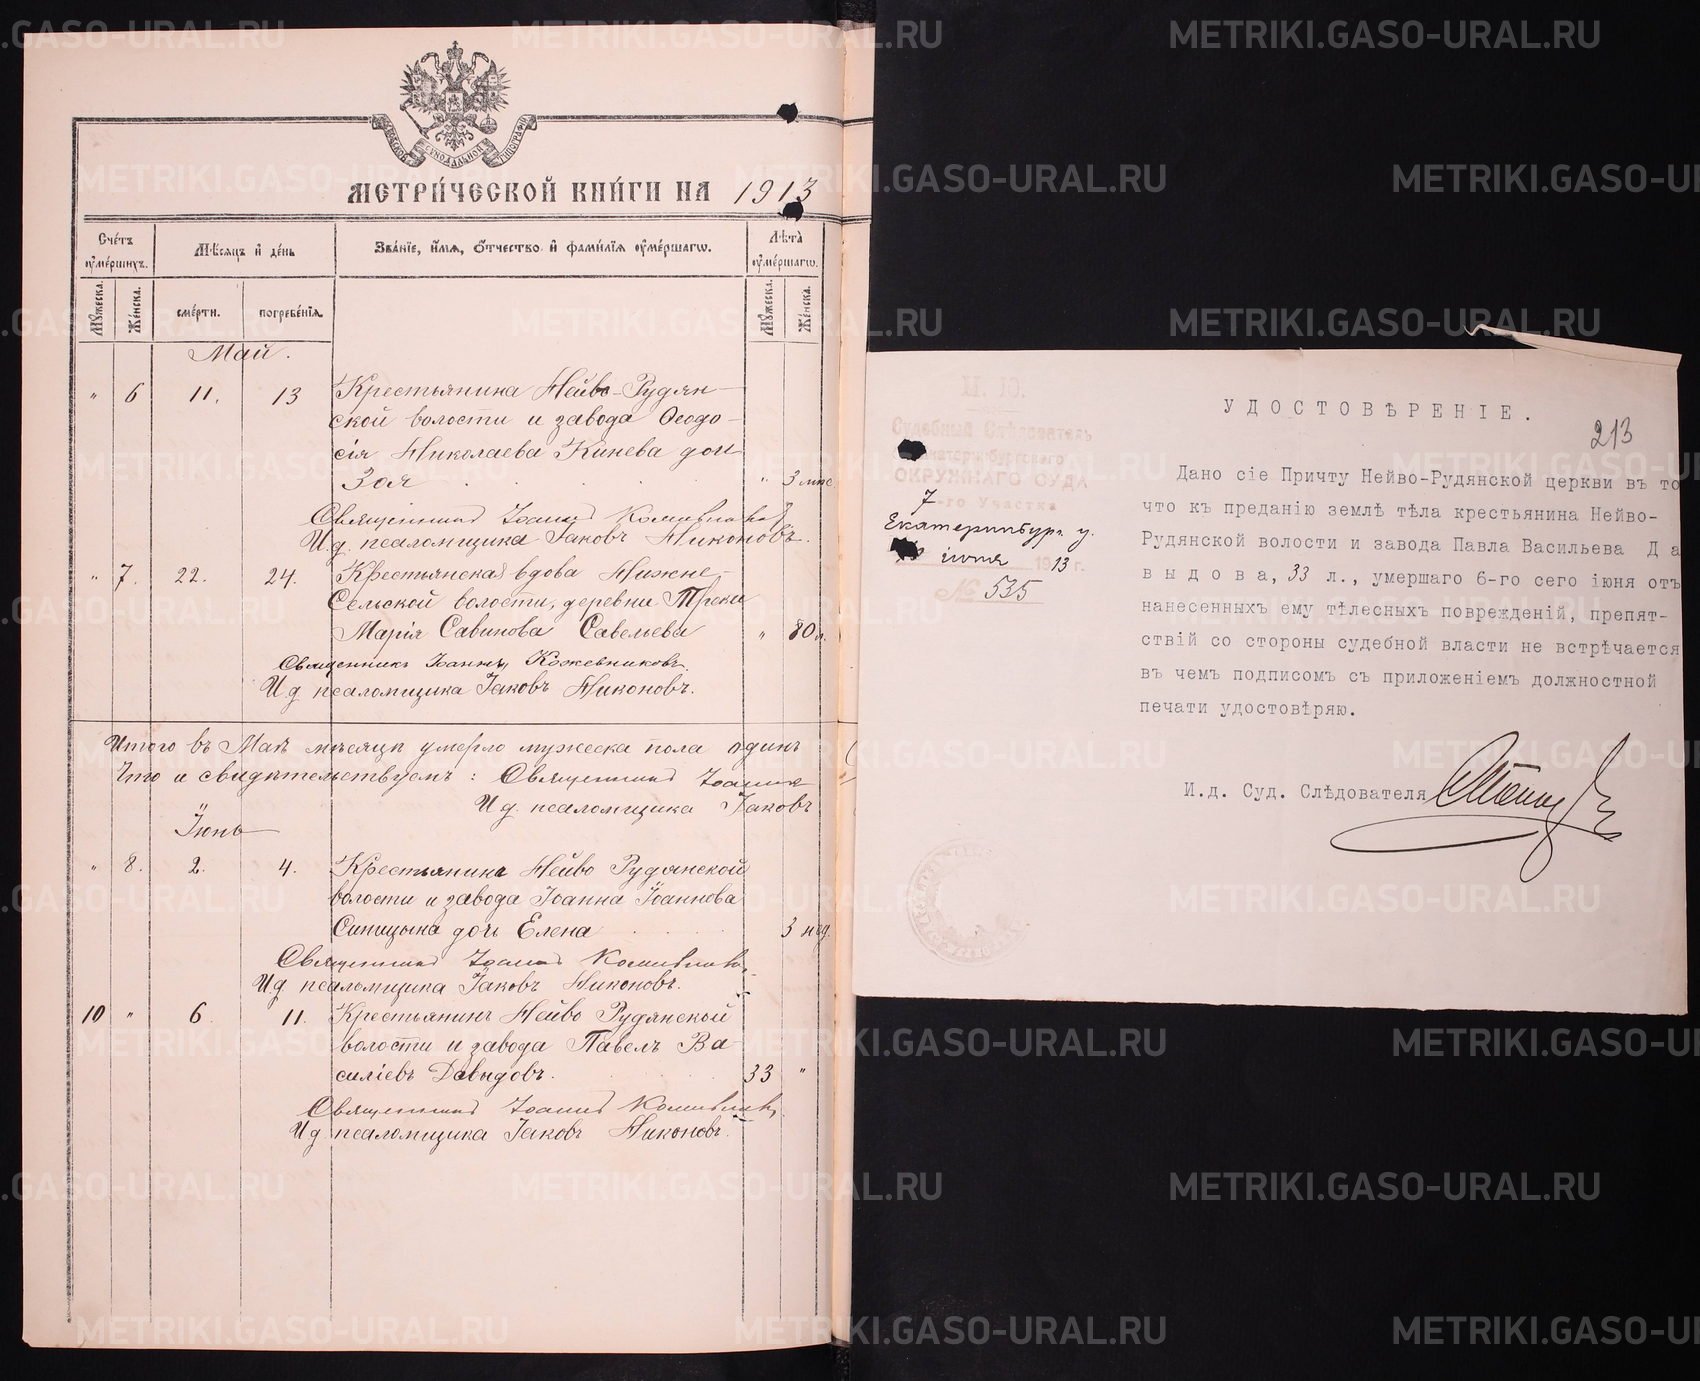 МЕТРИ́ЧЕСКОЙ КНИ́ГИ НА 1913
Сче́тъ ᲂуме́ршихъ.
Мѣ́сяцъ и де́нь
Зва́нїе, и́мѧ, ѻ҆́тчество и҆ фами́лїѧ ᲂуме́ршагѡ.
Лѣ́та ᲂуме́ршагѡ.
Мꙋ́жеска.
Же́нска.
сме́рти.
погребе́нїѧ.
Мꙋ́жеска.
Же́нска.
Май.
" 6 11. 13 Крестьянина Нейво-Рудян-
ской волости и завода Ѳеодо-
сія Николаева Кинева дочь
Зоя " 3 мѣс.
Священникъ Іоаннъ Кожевниковъ
И.д. псаломщика Іаковъ Никоновъ.
" 7. 22. 24. Крестьянская вдова Нижне-
Сельской волости, деревни
Марія Савинова Савельева " 80 л.
Священникъ Іоаннъ Кожевниковъ.
И.д. псаломщика Іаковъ Никоновъ.
Итого въ Маѣ мѣсяцѣ умерло мужеска пола одинъ
Что и свидѣтельствуемъ: Священникъ Іоаннъ
И.д. псаломщика Іаковъ
Іюнь
" 8. 2. 4. Крестьянина Нейво Рудянской
волости и завода Іоанна Іоаннова
Синицына дочь Елена 3 нед.
Священникъ Іоаннъ Кожевниковъ
И.д. псаломщика Іаковъ Никоновъ.
10 " 6. 11. Крестьянинъ Нейво Рудянской
волости и завода Павелъ Ва-
силіевъ Давыдовъ. 33 "
Священникъ Іоаннъ Кожевниковъ
И.д. псаломщика Іаковъ Никоновъ.
М. Ю.
Судебный Слѣдователь
Екатеринбургскаго
ОКРУЖНАГО СУДА
7-го Участка
Екатеринбург. у.
іюня 1913 г.
№ 535
УДОСТОВѢРЕНІЕ.
213
Дано сіе Причту Нейво-Рудянской церкви въ то
что къ преданію землѣ тѣла крестьянина Нейво-
Рудянской волости и завода Павла Васильева Д а
в ы д о в а, 33 л., умершаго 6-го сего іюня отъ
нанесенныхъ ему тѣлесныхъ поврежденій, препят-
ствій со стороны судебной власти не встрѣчается
въ чемъ подписомъ съ приложеніемъ должностной
печати удостовѣряю.
И.д. Суд. Слѣдователя
METRIKI.GASO-URAL.RU